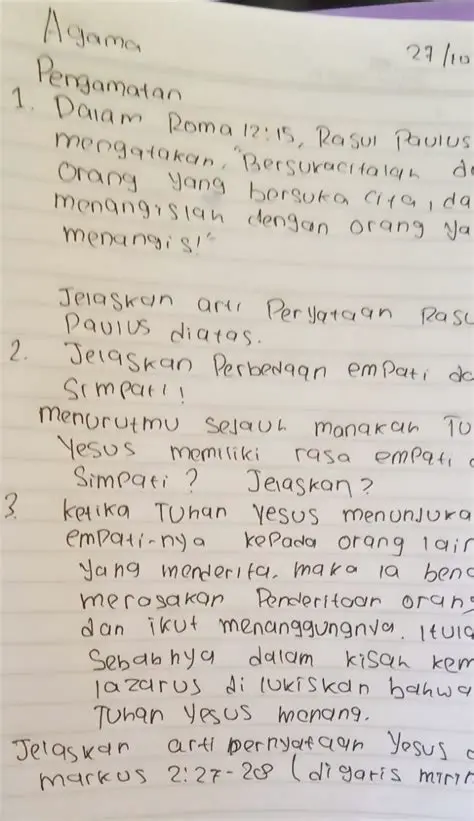 Agama
27/10
Pengamatan
1. Dalam Roma 12:15, Rasul Paulus
mengatakan, "Bersukacitalah de
orang yang bersuka cita, da
menangislah dengan orang ya
menangis!"
Jelaskan arti Peryataan Rasu
Paulus diatas.
2. Jelaskan Perbedaan empati da
Simpati!
menurutmu sejauh manakah Tu
Yesus memiliki rasa empati d
Simpati? Jelaskan?
3. ketika Tuhan Yesus menunjuka
empati-nya kepada orang lain
yang menderita, maka ia bena
merasakan Penderitaan orang
dan ikut menanggungnya. Itula
Sebabnya dalam kisah kem
lazarus di lukiskan bahwa
Tuhan Yesus menang.
Jelaskan arti pernyataan Yesus d
markus 2:27-28 (digaris mirin